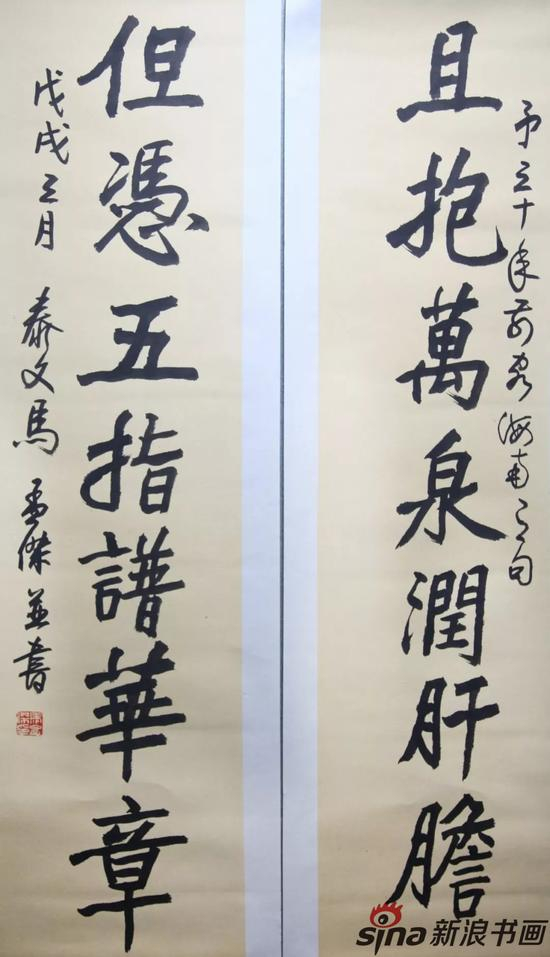 且抱萬泉潤肝膽
予三十年前客海南之句
但憑五指譜華章
戊戌三月 泰文馬孟傑並書
sina新浪书画